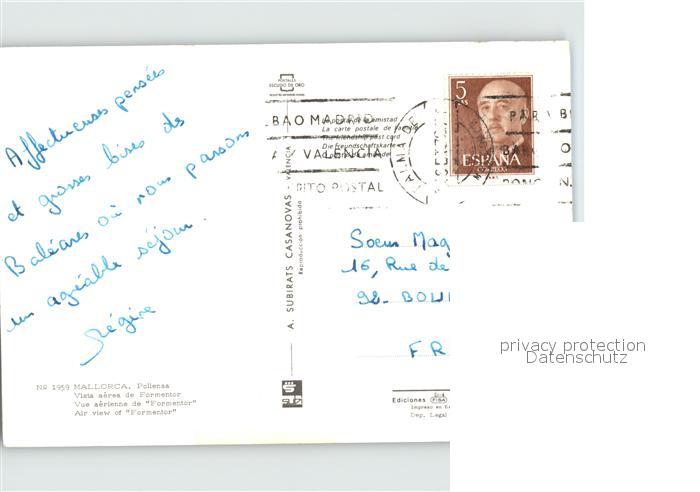 Affectueuses pensées
et grosses bises des
Baléares où nous passons
un agréable séjour.
Régine
Nº 1959 MALLORCA. Pollensa
Vista aérea de Formentor
Vue aérienne de "Formentor"
Air view of "Formentor"
POSTALES
ESCUDO DE ORO
A. SUBIRATS CASANOVAS - VALENCIA
Reproducción prohibida
La carte postale de
Die freundschaftskarte
BAO MADRID
VALENCIA
POSTAL
5
PTS
ESPAÑA
CORREOS
Soeur Mag
16, Rue de
92- BOU
FR
Ediciones FISA
Impreso en Es
Dep. Legal
privacy protection
Datenschutz